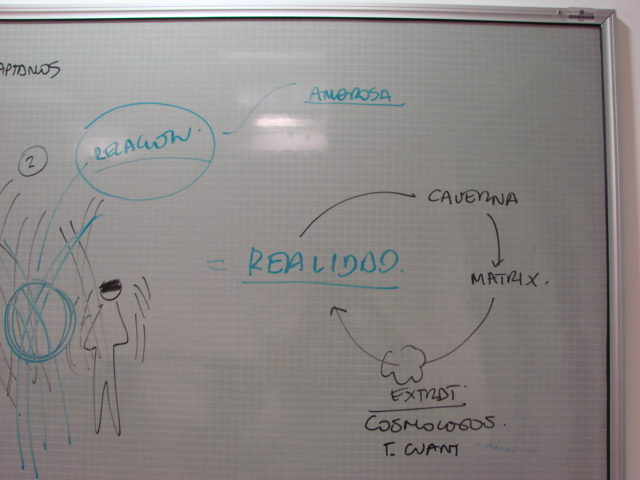 APTANOS
AMOROSA
RELACION.
2
CAVERNA
= REALIDAD.
MATRIX.
EXTRAT.
COSMOLOGOS.
T. CUANT